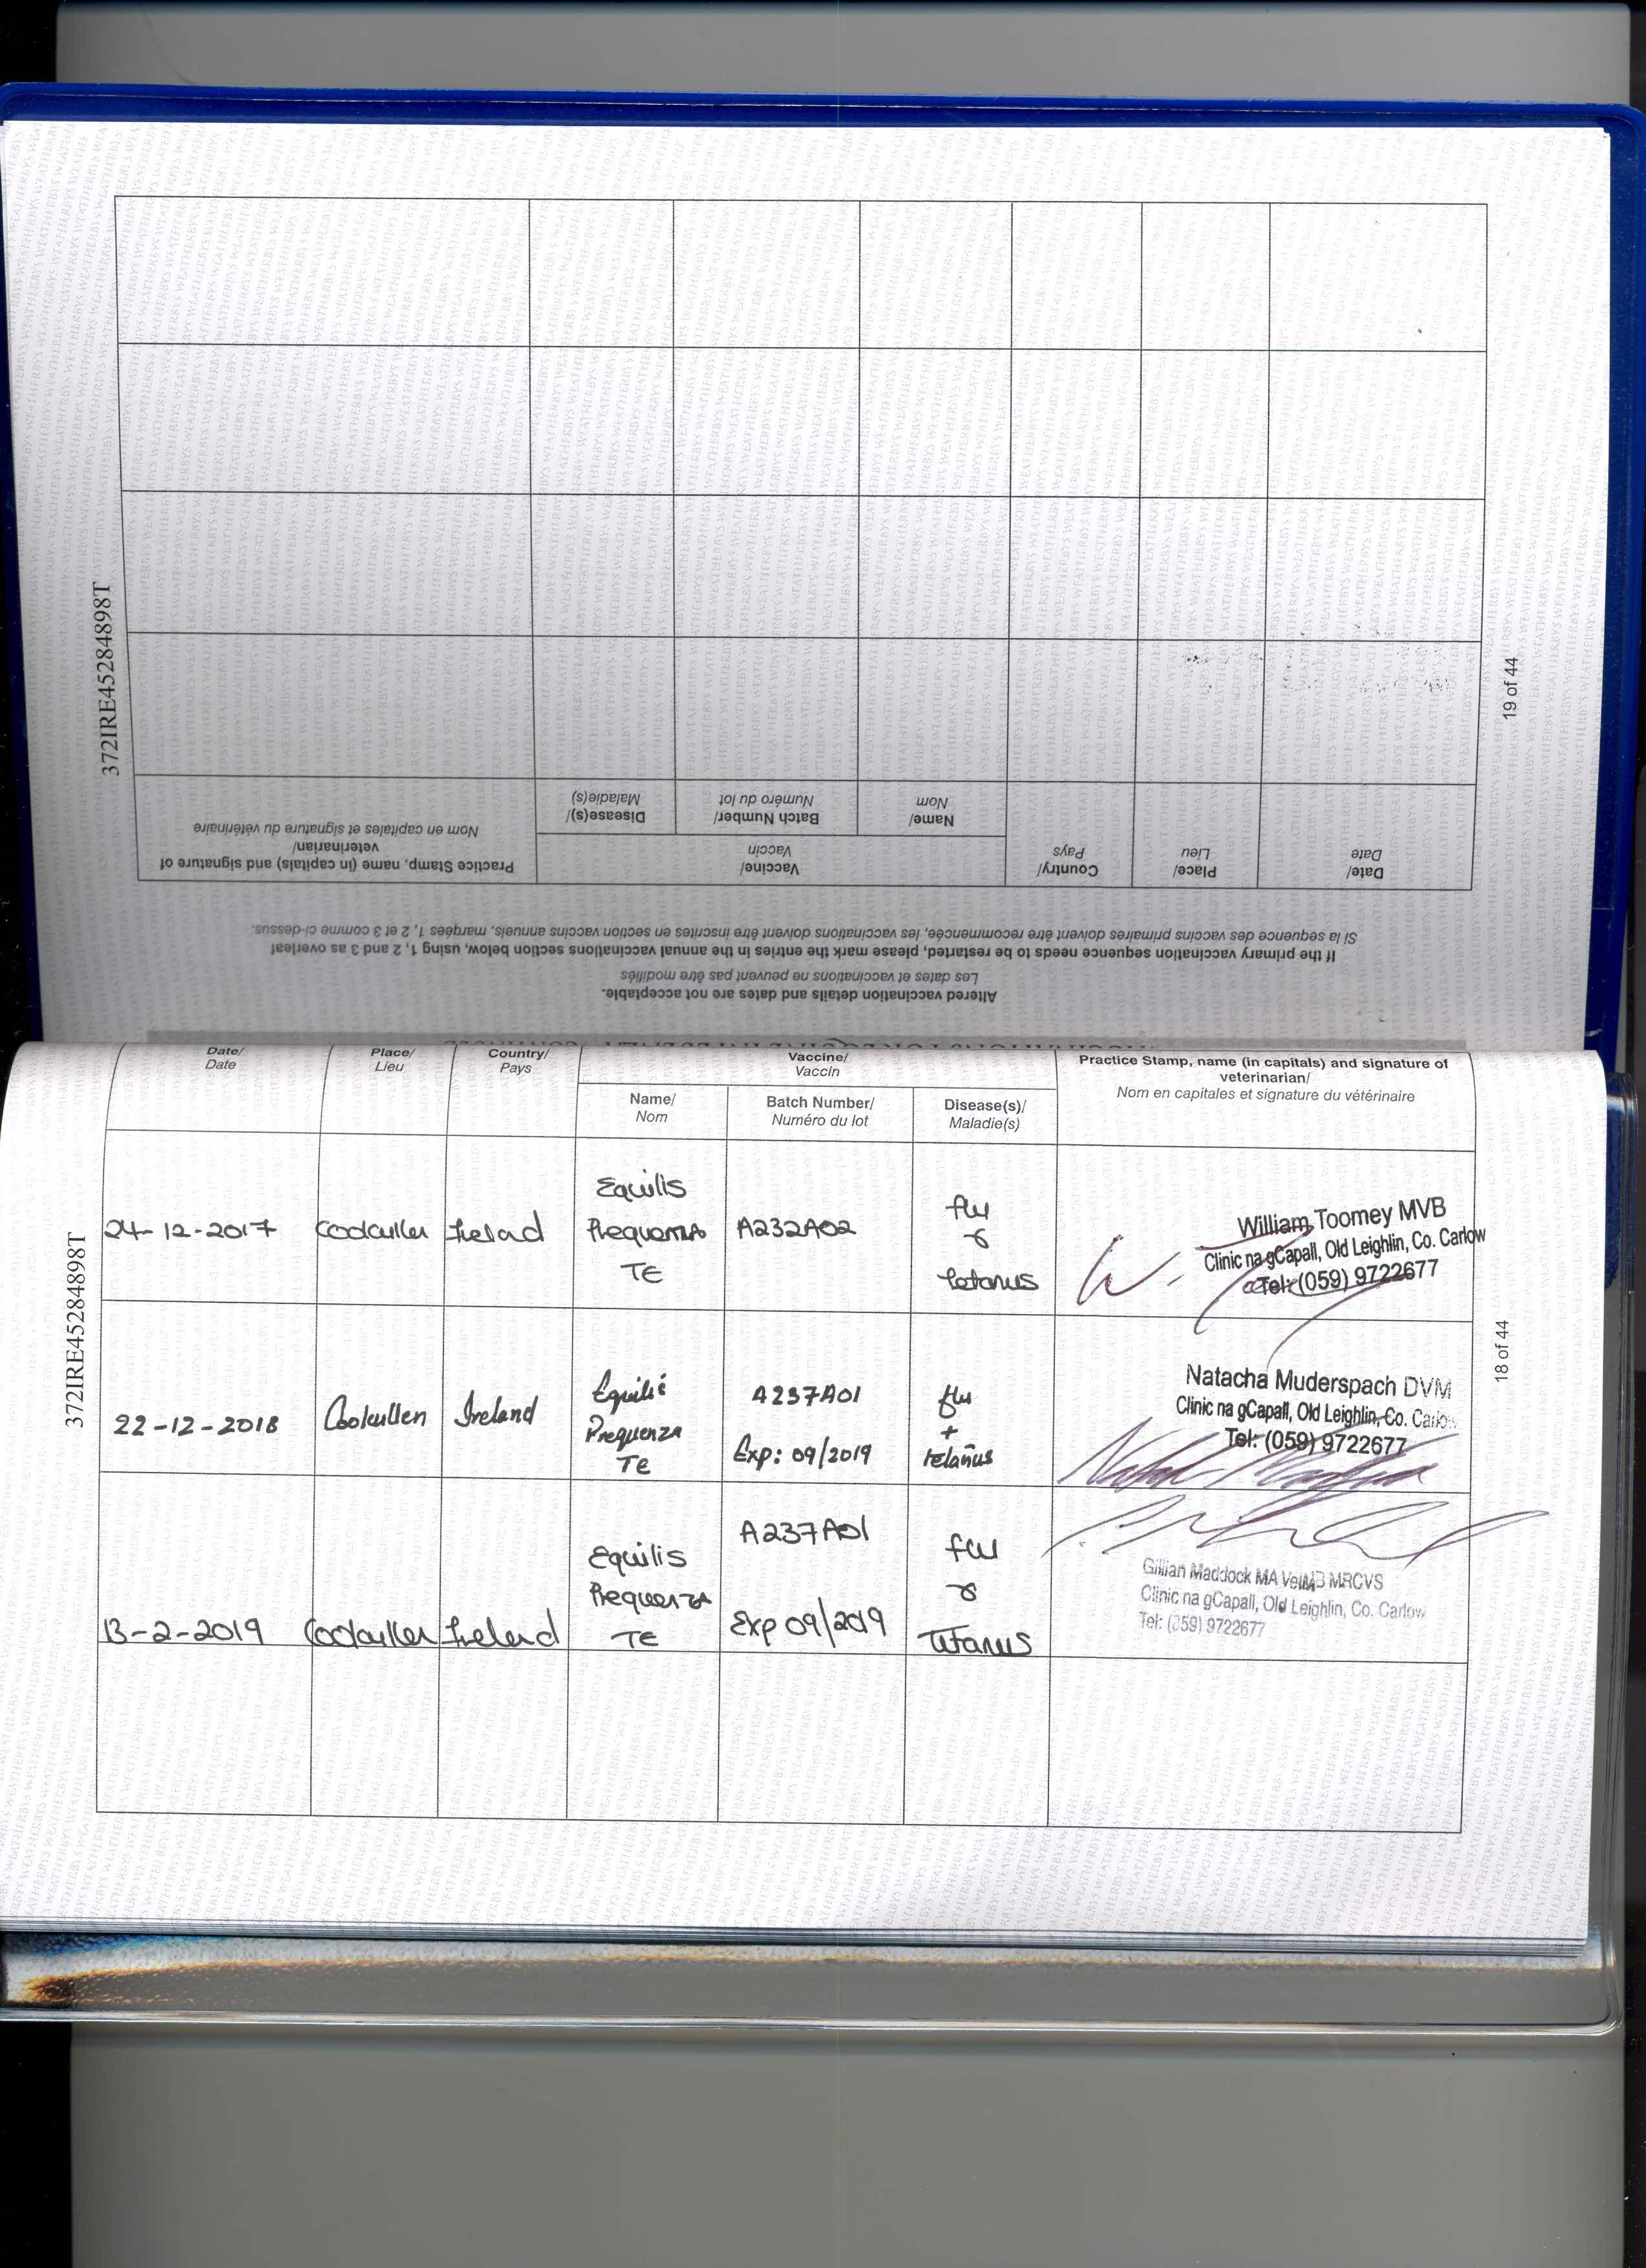 372IRE45284898T
19 of 44
Altered vaccination details and dates are not acceptable.
Les dates et vaccinations ne peuvent pas être modifiés
If the primary vaccination sequence needs to be restarted, please mark the entries in the annual vaccinations section below, using 1, 2 and 3 as overleaf
Si la sequence des vaccins primaires doivent être recommencée, les vaccinations doivent être inscrites en section vaccins annuels, marqées 1, 2 et 3 comme ci-dessus.
Date/
Date
Place/
Lieu
Country/
Pays
Vaccine/
Vaccin
Name/
Nom
Batch Number/
Numéro du lot
Disease(s)/
Maladie(s)
Practice Stamp, name (in capitals) and signature of
veterinarian/
Nom en capitales et signature du vétérinaire
372IRE45284898T
18 of 44
Date/
Date
Place/
Lieu
Country/
Pays
Vaccine/
Vaccin
Name/
Nom
Batch Number/
Numéro du lot
Disease(s)/
Maladie(s)
Practice Stamp, name (in capitals) and signature of
veterinarian/
Nom en capitales et signature du vétérinaire
24-12-2017
Coolcullen
Ireland
Equilis
Prequenza
TE
A232A02
flu
&
tetanus
William Toomey MVB
Clinic na gCapall, Old Leighlin, Co. Carlow
Tel: (059) 9722677
22-12-2018
Coolcullen
Ireland
Equilis
Prequenza
TE
A237A01
Exp: 09/2019
flu
+
tetanus
Natacha Muderspach DVM
Clinic na gCapall, Old Leighlin, Co. Carlow
Tel: (059) 9722677
13-2-2019
Coolcullen
Ireland
Equilis
Prequenza
TE
A237A01
Exp 09/2019
flu
&
Tetanus
Gillian Maddock MA VetMB MRCVS
Clinic na gCapall, Old Leighlin, Co. Carlow
Tel: (059) 9722677